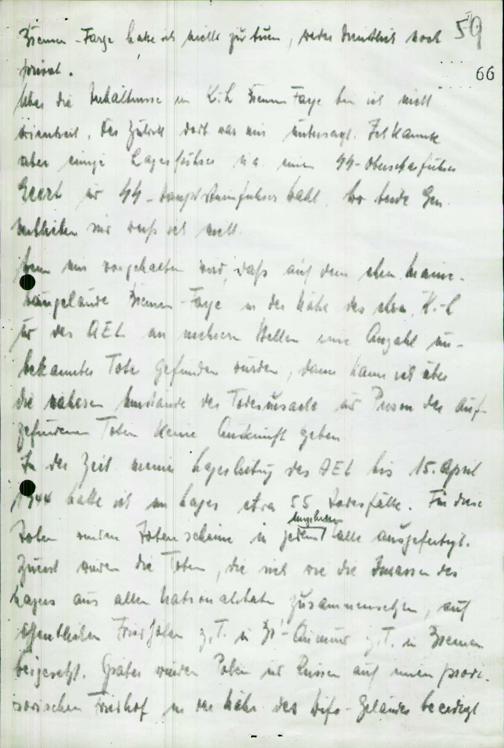 59
66
Bremen-Farge hatte ich nichts zu tun, weder dienstlich noch
privat.
Über die Verhältnisse im K.L. Bremen-Farge bin ich nicht
orientiert. Der Zutritt dort war mir untersagt. Ich kannte
aber einige Lagerführer u.a. einen SS-Oberscharführer
und SS-Hauptsturmführer Wahl. Wo beide
verblieben sind weiß ich nicht.
Wenn mir vorgehalten wird, daß auf dem ehem. Marine-
baugelände Bremen-Farge in der Nähe des ehem. K.-L.
und des AEL an mehreren Stellen eine Anzahl un-
bekannter Tote gefunden wurden, dann kann ich über
die näheren Umstände der Todesursache und Person der auf-
gefundenen Toten keine Auskunft geben.
In der Zeit meiner Lagerleitung des AEL bis 15. April
1944 hatte ich im Lager etwa 55 Todesfälle. Für diese
Toten wurden Totenscheine in jedem Falle ausgefertigt.
Zuerst wurden die Toten, die sich wie die Insassen des
Lagers aus allen Nationalitäten zusammensetzten, auf
öffentlichen Friedhöfen z.T. in Br-Aumund z.T. in Bremen
beigesetzt. Später wurden Polen und Russen auf einem provi-
sorischen Friedhof in der Nähe des Wifo-Geländes beerdigt